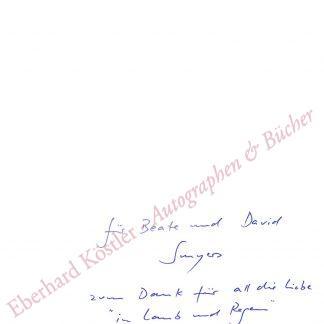 Eberhard Köstler Autographen & Bücher
für Beate und David
Smyers
zum Dank für all die Liebe
"in Laub und Regen"